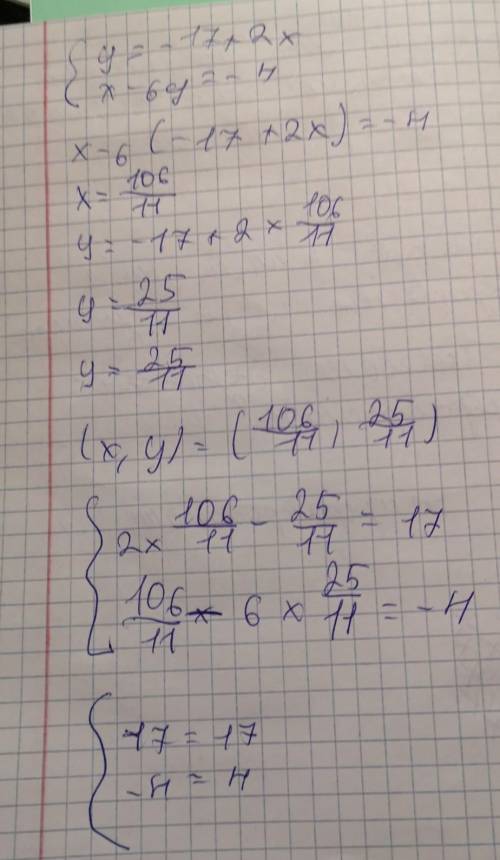 { y = -17 + 2x
x - 6y = -4
x - 6 (-17 + 2x) = -4
x = 106/11
y = -17 + 2 × 106/11
y = 25/11
y = 25/11
(x, y) = (106/11, 25/11)
{ 2 × 106/11 - 25/11 = 17
106/11 - 6 × 25/11 = -4
{ 17 = 17
-4 = 4